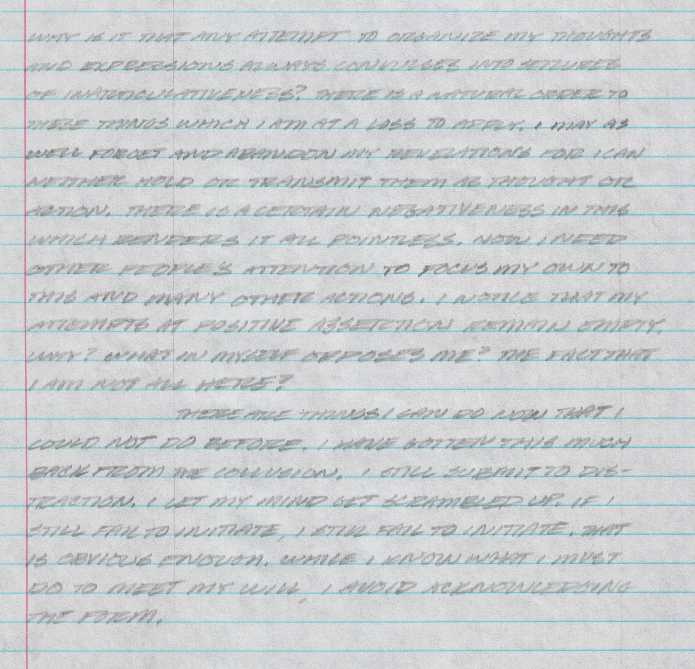 WHY IS IT THAT ANY ATTEMPT TO ORGANIZE MY THOUGHTS
AND EXPRESSIONS ALWAYS CONVULSES INTO SEIZURES
OF INARTICULATIVENESS? THERE IS A NATURAL ORDER TO
THESE THINGS WHICH I AM AT A LOSS TO APPLY. I MAY AS
WELL FORGET AND ABANDON MY REVELATIONS FOR I CAN
NEITHER HOLD OR TRANSMIT THEM AS THOUGHT OR
ACTION. THERE IS A CERTAIN NEGATIVENESS IN THIS
WHICH RENDERS IT ALL POINTLESS. NOW I NEED
OTHER PEOPLE'S ATTENTION TO FOCUS MY OWN TO
THIS AND MANY OTHER ACTIONS. I NOTICE THAT MY
ATTEMPTS AT POSITIVE ASSERTION REMAIN EMPTY.
WHY? WHAT IN MYSELF OPPOSES ME? THE FACT THAT
I AM NOT ALL HERE?
THERE ARE THINGS I CAN DO NOW THAT I
COULD NOT DO BEFORE. I HAVE GOTTEN THIS MUCH
BACK FROM THE COLLUSION. I STILL SUBMIT TO DIS-
TRACTION. I LET MY MIND GET SCRAMBLED UP. IF I
STILL FAIL TO INITIATE, I STILL FAIL TO INITIATE. THAT
IS OBVIOUS ENOUGH. WHILE I KNOW WHAT I MUST
DO TO MEET MY WILL, I AVOID ACKNOWLEDGING
THE FORM.